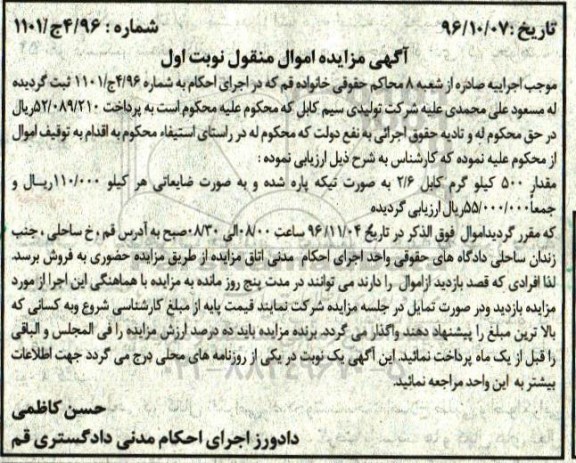 تاریخ :۹۶/۱۰/۰۷ شماره : ۴/۹۶ج/۱۱۰۱
آگهی مزایده اموال منقول نوبت اول
موجب اجراییه صادره از شعبه ۸ محاکم حقوقی خانواده قم که در اجرای احکام به شماره ۴/۹۶ج/۱۱۰۱ ثبت گردیده
له مسعود علی محمدی علیه شرکت تولیدی سیم کابل که محکوم علیه محکوم است به پرداخت ۵۲/۰۸۹/۲۱۰ریال
در حق محکوم له و تادیه حقوق اجرائی به نفع دولت که محکوم له در راستای استیفاء محکوم به اقدام به توقیف اموال
از محکوم علیه نموده که کارشناس به شرح ذیل ارزیابی نموده :
مقدار ۵۰۰ کیلو گرم کابل ۲/۶ به صورت تیکه پاره شده و به صورت ضایعاتی هر کیلو ۱۱۰/۰۰۰ریال و
جمعاً ۵۵/۰۰۰/۰۰۰ریال ارزیابی گردیده
که مقرر گردیداموال فوق الذکر در تاریخ ۹۶/۱۱/۰۴ ساعت ۰۸/۰۰الی ۰۸/۳۰صبح به آدرس قم ،خ ساحلی ، جنب
زندان ساحلی دادگاه های حقوقی واحد اجرای احکام مدنی اتاق مزایده از طریق مزایده حضوری به فروش برسد.
لذا افرادی که قصد بازدید ازاموال را دارند می توانند در مدت پنج روز مانده به مزایده با هماهنگی این اجرا از مورد
مزایده بازدید ودر صورت تمایل در جلسه مزایده شرکت نمایند قیمت پایه از مبلغ کارشناسی شروع وبه کسانی که
بالا ترین مبلغ را پیشنهاد دهند واگذار می گردد. برنده مزایده باید ده درصد ارزش مزایده را فی المجلس و الباقی
را قبل از یک ماه پرداخت نمائید. این آگهی یک نوبت در یکی از روزنامه های محلی درج می گردد جهت اطلاعات
بیشتر به این واحد مراجعه نمائید.
حسن کاظمی
دادورز اجرای احکام مدنی دادگستری قم